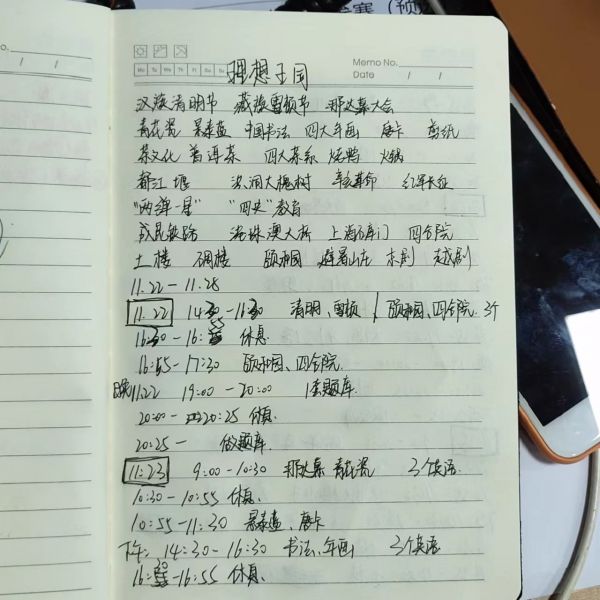 塞（预
No.
/ /
Mo Tu We Th Fr Sa Su
Memo No.
Date / /
理想王国
汉族清明节 藏族雪顿节 那达慕大会
青花瓷 景泰蓝 中国书法 四大年画 唐卡 剪纸
茶文化 普洱茶 四大菜系 烤鸭 火锅
都江堰 洪洞大槐树 辛亥革命 红军长征
"两弹一星" "四史"教育
成昆铁路 港珠澳大桥 上海石库门 四合院
土楼 碉楼 颐和园 避暑山庄 京剧 越剧
11.22-11.28
11.22 14:30-16:30 清明、雪顿 颐和园、四合院 3个
16:30-16:55 休息
16:55-17:30 颐和园、四合院
11.22 19:00-20:00 1套题库
20:00-20:25 休息
20:25- 做题库
11:23 9:00-10:30 那达慕 青花瓷 3个英语
10:30-10:55 休息、
10:55-11:30 景泰蓝、唐卡
下午: 14:30-16:30 书法、年画 3个英语
16:30-16:55 休息、